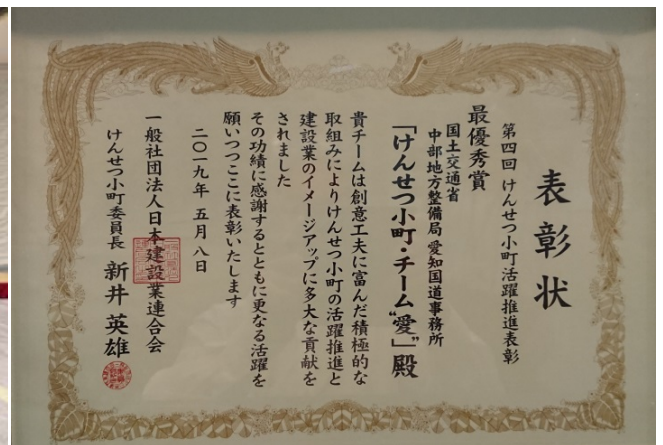 表彰状
第四回 けんせつ小町活躍推進表彰
最優秀賞
国土交通省
中部地方整備局 愛知国道事務所
「けんせつ小町・チーム“愛”」殿
貴チームは創意工夫に富んだ積極的な
取組みによりけんせつ小町の活躍推進と
建設業のイメージアップに多大な貢献を
されました
その功績に感謝するとともに更なる活躍を
願いつつここに表彰いたします
二〇一九年 五月八日
一般社団法人日本建設業連合会
けんせつ小町委員長 新井英雄